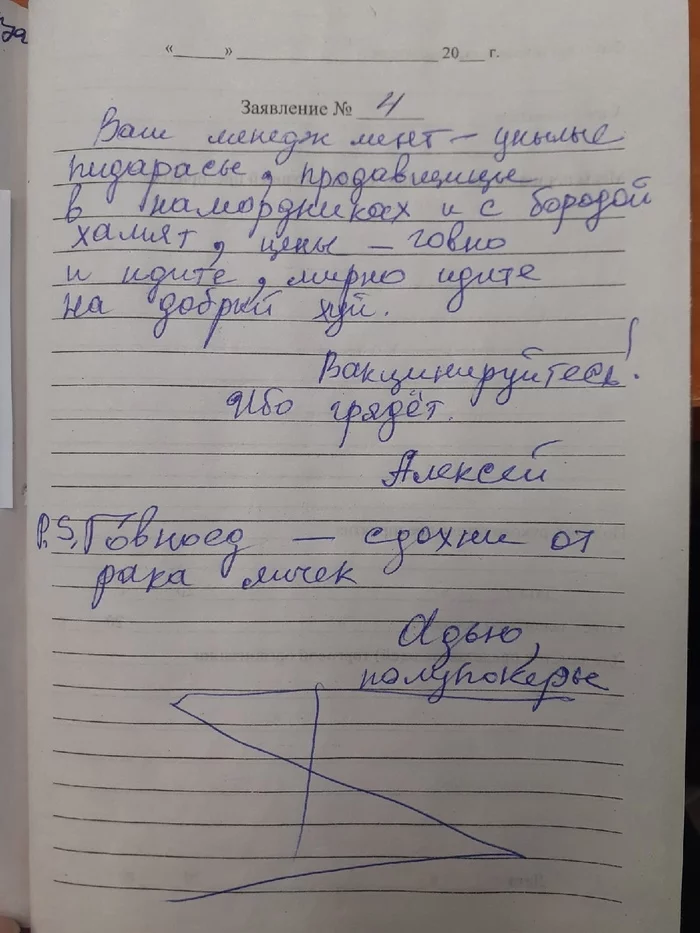 «____» ____________ 20__ г.
Заявление № 4
Ваш менеджмент — унылые
пидарасы, продавщицы
в намордниках и с бородой
хамят, цены — говно
и идите, мирно идите
на добрый хуй.
Вакцинируйтесь!
Ибо грядёт.
Алексей
P.S. Говноед — сдохни от
рака яичек
Адью,
полупокеры